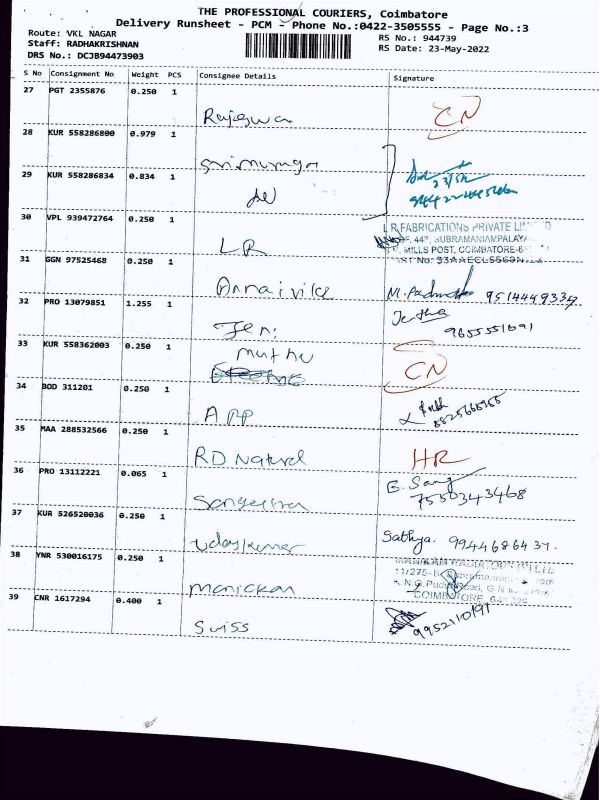 THE PROFESSIONAL COURIERS, Coimbatore
Delivery Runsheet - PCM - Phone No.:0422-3505555 - Page No.:3
Route: VKL NAGAR
RS No.: 944739
Staff: RADHAKRISHNAN
RS Date: 23-May-2022
DRS No.: DCJB94473903
S No Consignment No Weight PCS Consignee Details Signature
27 PGT 2355876 0.250 1 Rajeswa CN
28 KUR 558286800 0.979 1
29 KUR 558286834 0.834 1 23/5/22
30 VPL 939472764 0.250 1 LR
L R FABRICATIONS PRIVATE
SUBRAMANIAMPALAYA
MILLS POST, COIMBATORE-6
31 GGN 97525468 0.250 1 Annai vilce M. 9514449334
32 PRO 13079851 1.255 1 Jen. 9655551691
33 KUR 558362003 0.250 1 muthu CN
34 BOD 311201 0.250 1 APP
35 MAA 288532566 0.250 1 RD Natural HR
36 PRO 13112221 0.065 1 Sangeetha 7550343468
37 KUR 526520036 0.250 1 Udaykumar Sathya. 9944686437.
38 YNR 530016175 0.250 1 Manickam
COIMBATORE
39 CNR 1617294 0.400 1 Swiss 9952110191